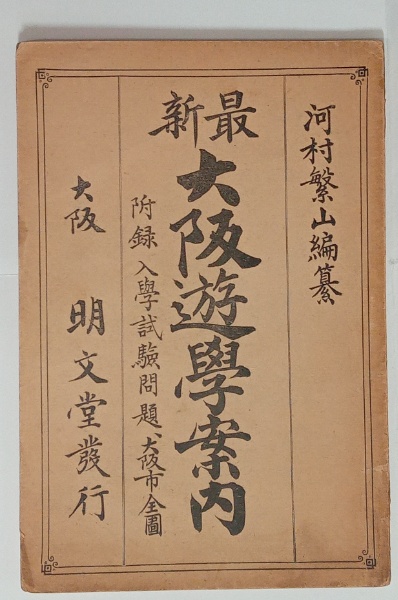 河村繁山編纂
最新
大阪遊學案内
附録 入學試驗問題、大阪市全圖
大阪 明文堂發行